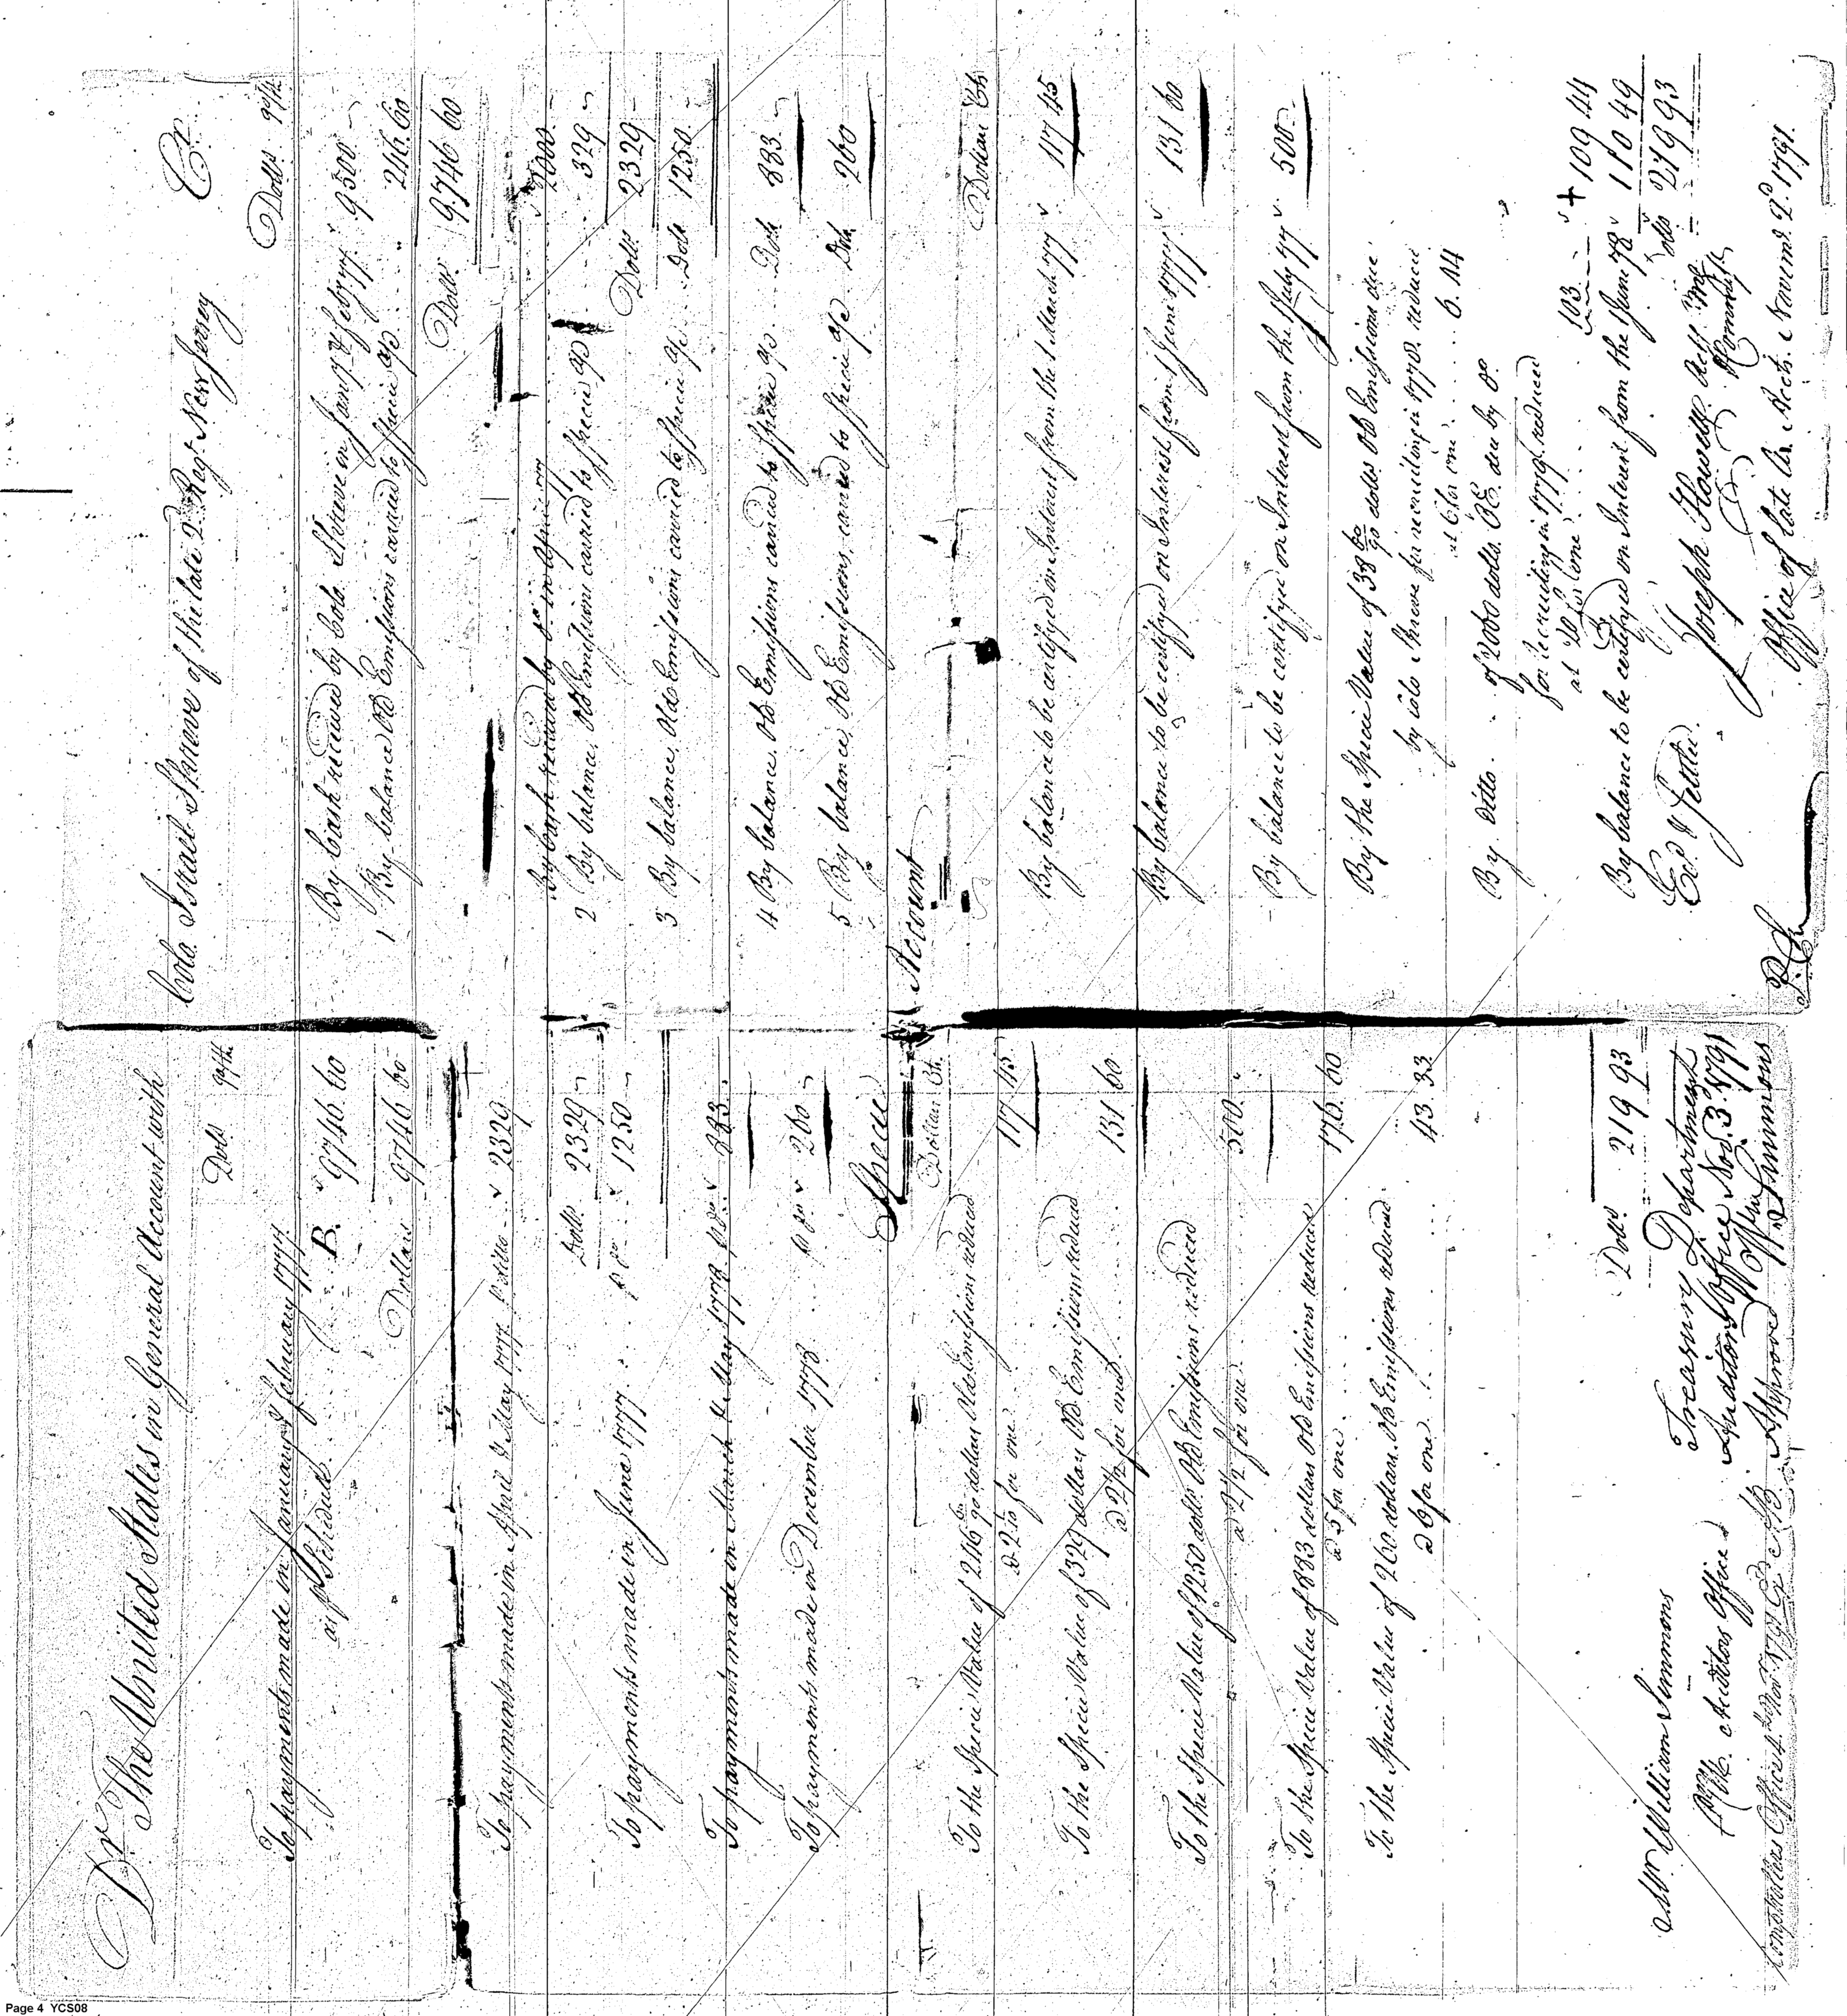 Dr. The United States in General Account with
Dolls 90ths
To payments made in January & February 1777
as pr Schedule B. 9746 60
Dollars 9746 60
To payments made in April & May 1777 pr ditto 2329
Dolls 2329
To payments made in June 1777 pr do 1250
To payments made in March & May 1778 pr do 883
To payments made in December 1778 pr do 260
Cola. Israel Shreve of the late 2d Regt. New Jersey Cr.
Dolls 90ths
By cash received by Colo. Shreve in Jany. & Feby 77 9500
1 By balance Old Emissions carried to Specie a/c 246.60
Dolls 9746 60
By cash received by do. in April 77 2000
2 By balance, Old Emissions carried to Specie a/c 329
Dolls 2329
3 By balance, Old Emissions carried to Specie a/c Dolls 1250
4 By balance Old Emissions carried to Specie a/c Dolls 883
5 By balance, Old Emissions, carried to Specie a/c Dolls 260
Specie Account
Dollars Cts.
To the Specie Value of 246 60/90 dollars Old Emissions reduced
for one 117 45
To the Specie Value of 329 dollars Old Emissions reduced
a 2 1/2 for one 131 60
To the Specie Value of 1250 dolls. Old Emissions reduced
a 2 1/2 for one 500
To the Specie Value of 883 dollars Old Emissions reduced
a 5 for one 176.60
To the Specie Value of 260 dollars. Old Emissions reduced
a 6 for one 43.33
Dolls 219 93
Mr William Simmons
Auditors Office
Treasury Department
Auditors Office Nov. 3. 1791
Wm Simmons
Comptrollers Office
Approved
Dollars Cts
By balance to be certifyed on Interest from the 1 March 77 117 45
By balance to be certifyed on Interest from 1 June 1777 131 60
By balance to be certifyed on Interest from the 1 July 77 500
By the Specie Value of 38 60/90 dolls. Old Emissions due
by Colo Shreve for recruiting in 1778. reduced
at 6 for one 6.44
By ditto of 2060 dolls. O.E. due by do
for recruiting in 1779. reduced
at 20 for one 103 109 44
By balance to be certifyed on Interest from the 1 June 78 110 49
Dolls 219 93
Joseph Howell
Office of late Ar. Accts. November 2d. 1791.
Page 4 YCS08